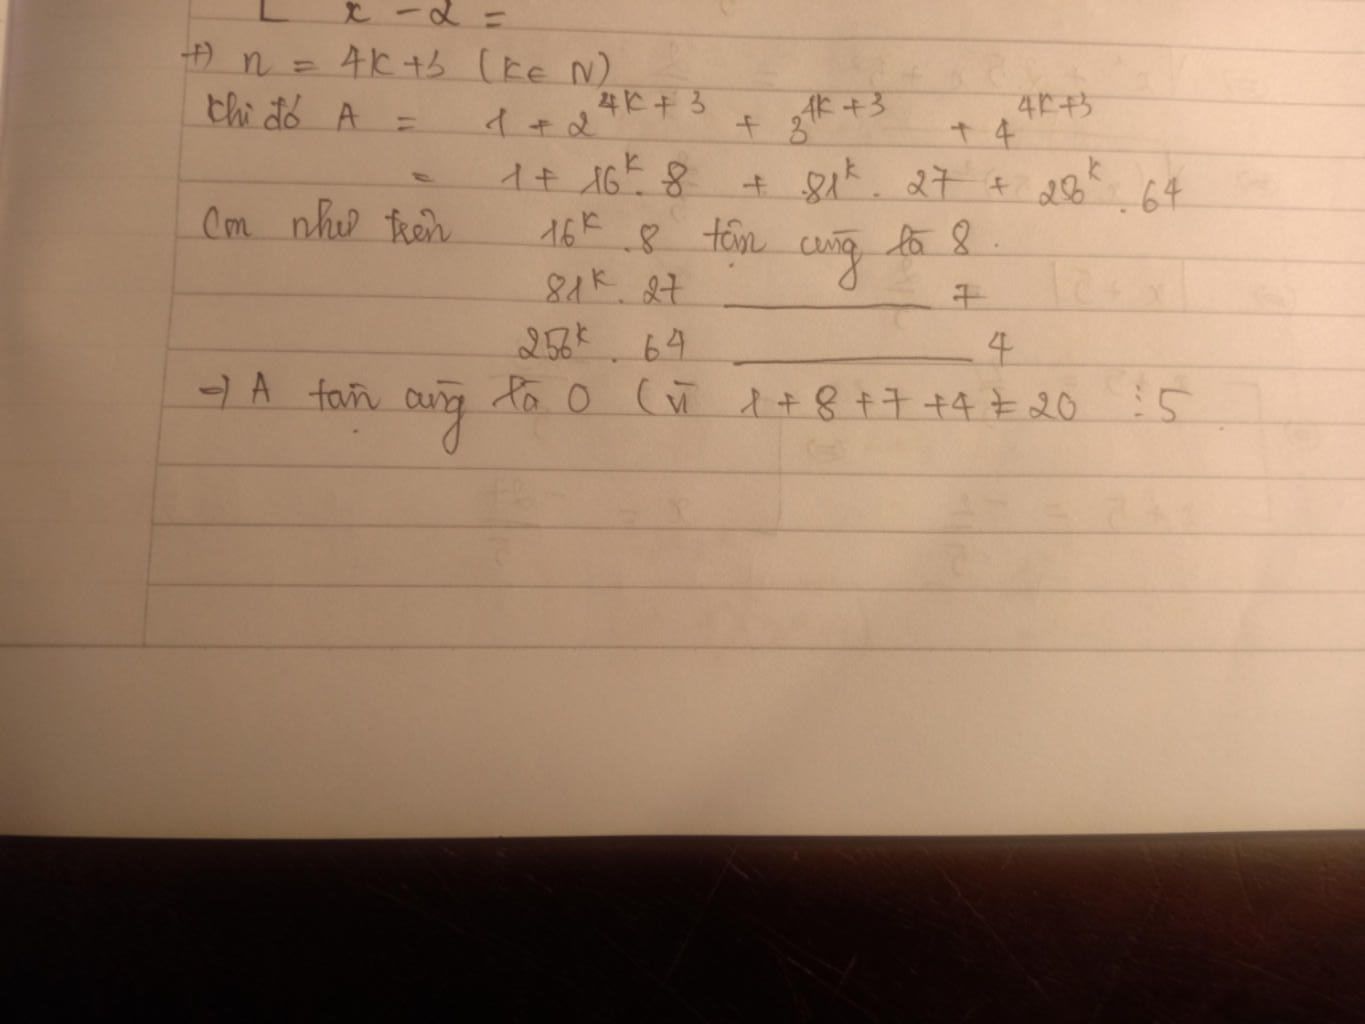 x - 2 =
+) n = 4k+3 (k∈ N)
Khi đó A = 1 + 2^{4k+3} + 3^{4k+3} + 4^{4k+3}
= 1 + 16^k . 8 + 81^k . 27 + 256^k . 64
Cm như trên 16^k . 8 tận cùng là 8 .
81^k . 27 ________ 7
256^k . 64 ________ 4
=) A tận cùng là 0 ( vì 1 + 8 + 7 + 4 = 20 ⋮ 5